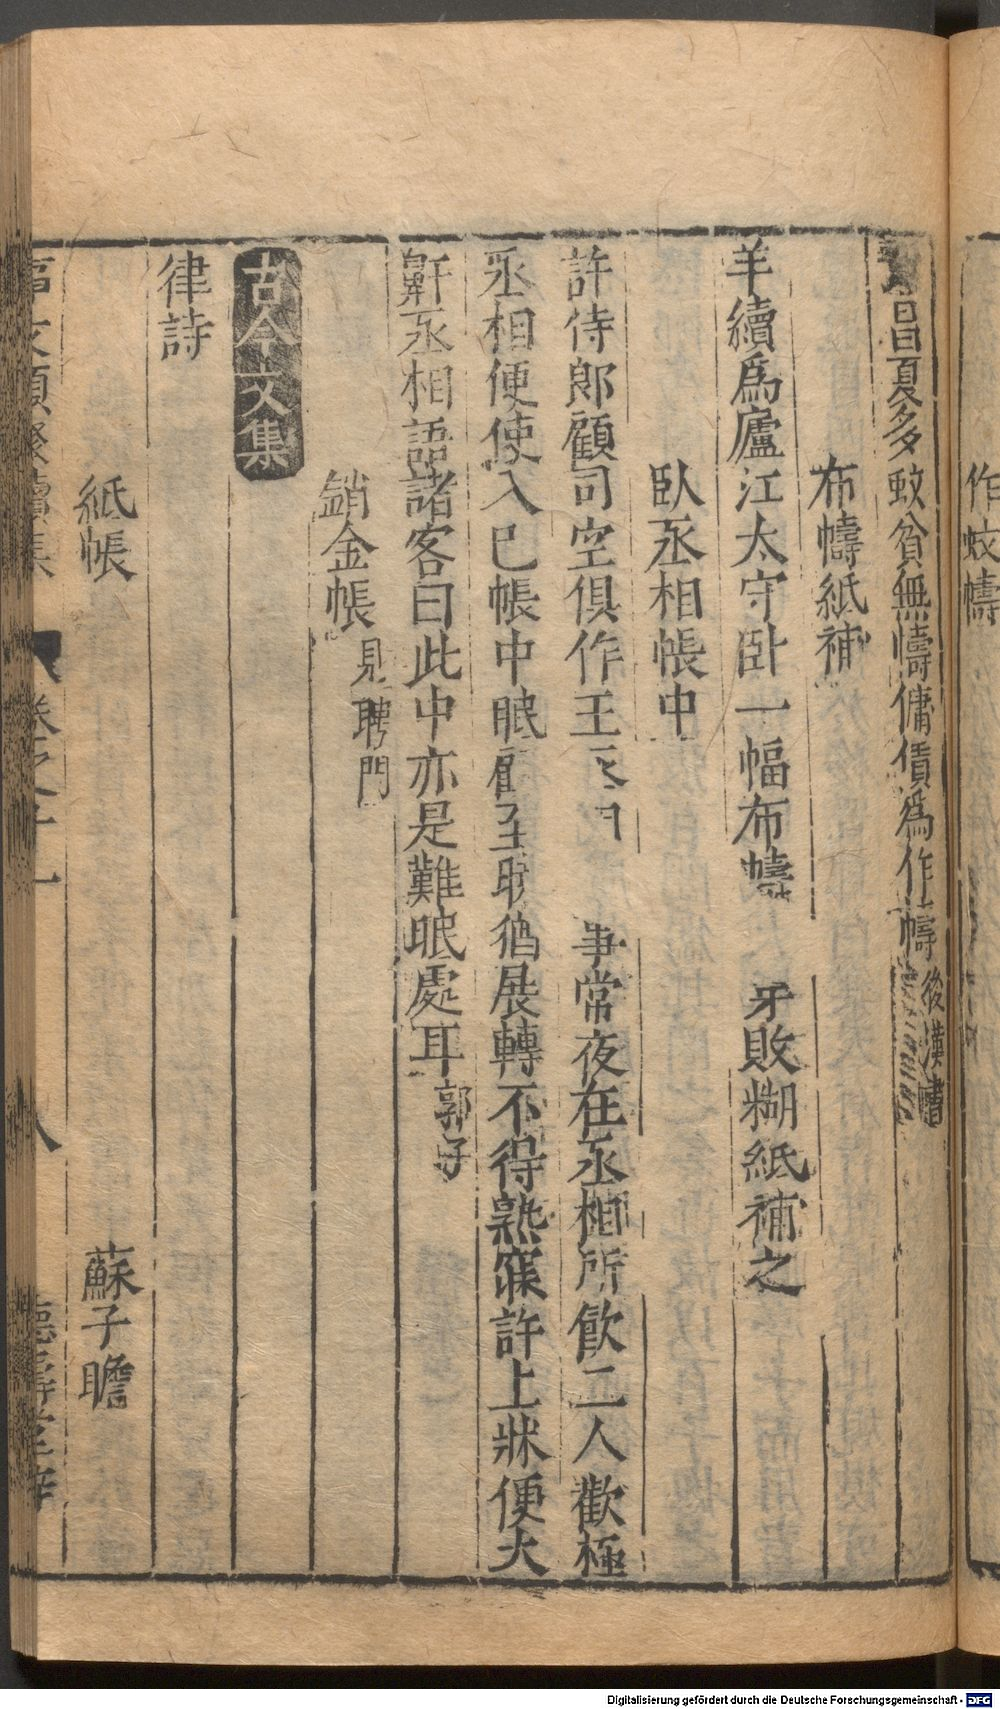 作蚊幬
昌夏多蚊貧無幬傭債爲作幬後漢
布幬紙補
羊續爲廬江太守卧一幅布幬 敗糊紙補之
臥丞相帳中
許侍郎顧司空俱作王 事常夜在丞相所飲二人歡極
丞相便使入已帳中眠顧至 猶展轉不得熟寐許上牀便大
鼾丞相語諸客曰此中亦是難眠處耳郭子
銷金帳見聘門
古今文集
律詩
紙帳 蘇子瞻
事文類聚續集 卷之十一 八 德壽堂梓
Digitalisierung gefördert durch die Deutsche Forschungsgemeinschaft - DFG